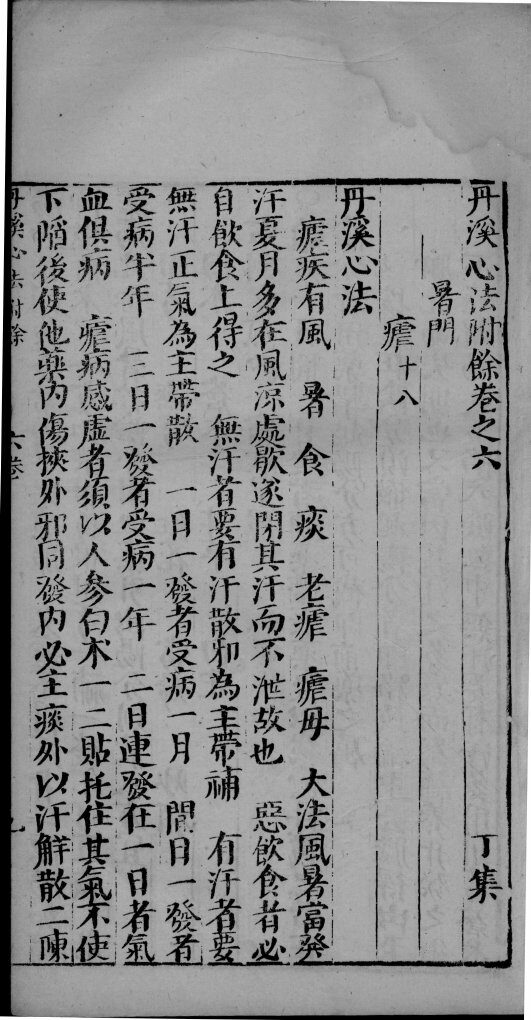 丹溪心法附餘卷之六　丁集
暑門
瘧十八
丹溪心法
瘧疾有風　暑　食　痰　老瘧　瘧母　大法風暑當發
汗夏月多在風涼處歇遂閉其汗而不泄故也　惡飲食者必
自飲食上得之　無汗者要有汗散邪為主帶補　有汗者要
無汗正氣為主帶散　一日一發者受病一月　間日一發者
受病半年　三日一發者受病一年　二日連發在一日者氣
血俱病　瘧病感虛者須以人參白朮一二貼托住其氣不使
下陷後使他藥內傷挾外邪同發內必主痰外以汗解散二陳
丹溪心法附餘　六卷